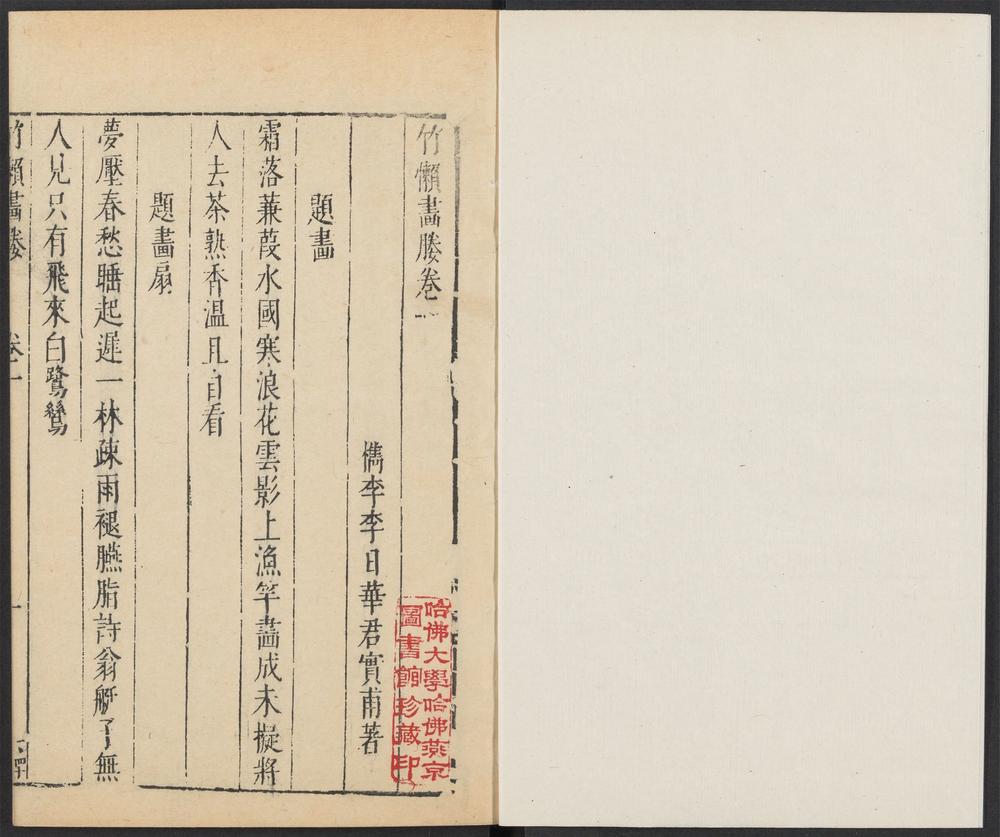 竹嬾畫媵卷一
儁李李日華君實甫著
題畫
霜落蒹葭水國寒浪花雲影上漁竿畵成未擬將
人去茶熟香温且自看
題畵扇
夢壓春愁睡起遲一林疎雨褪臙脂詩翁艇子無
人見只有飛來白鷺鷥
竹嬾畵媵
卷一
一
哈佛大學哈佛燕京
圖書館珍藏印